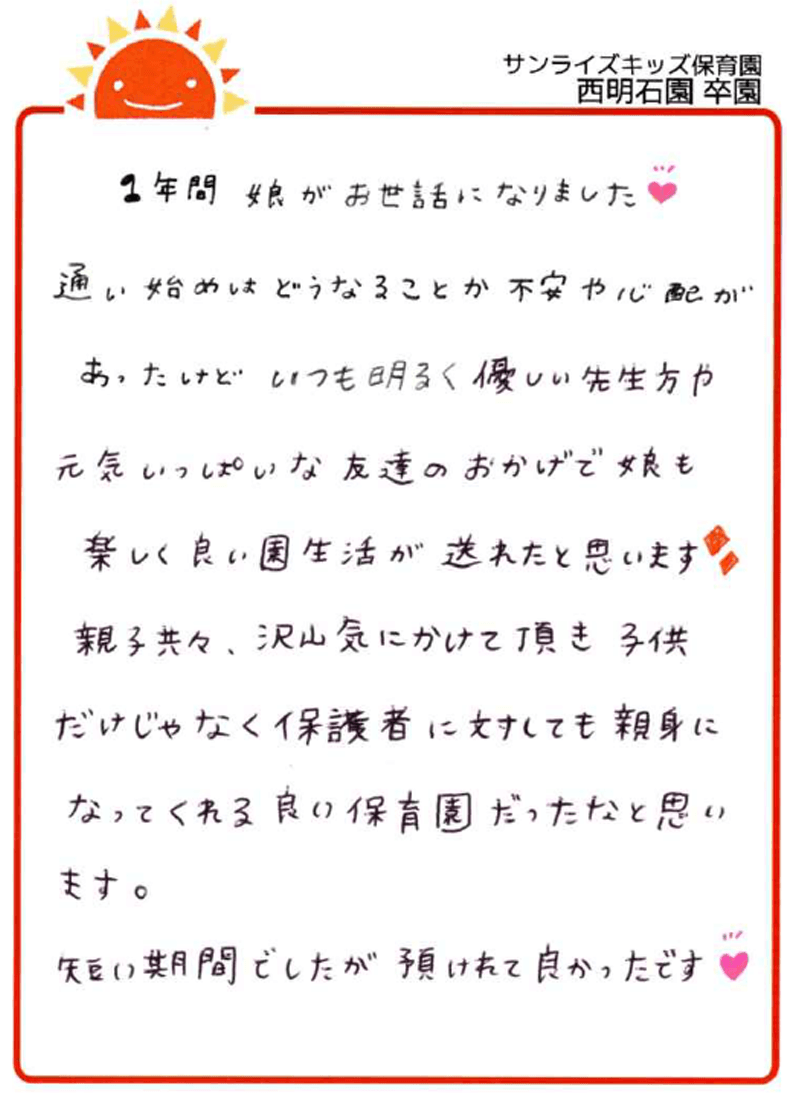 サンライズキッズ保育園
西明石園 卒園
1年間 娘がお世話になりました
通い始めはどうなることか不安や心配が
あったけど いつも明るく優しい先生方や
元気いっぱいな友達のおかげで娘も
楽しく良い園生活が送れたと思います
親子共々、沢山気にかけて頂き 子供
だけじゃなく保護者に対しても親身に
なってくれる良い保育園だったなと思い
ます。
短い期間でしたが 預けれて良かったです